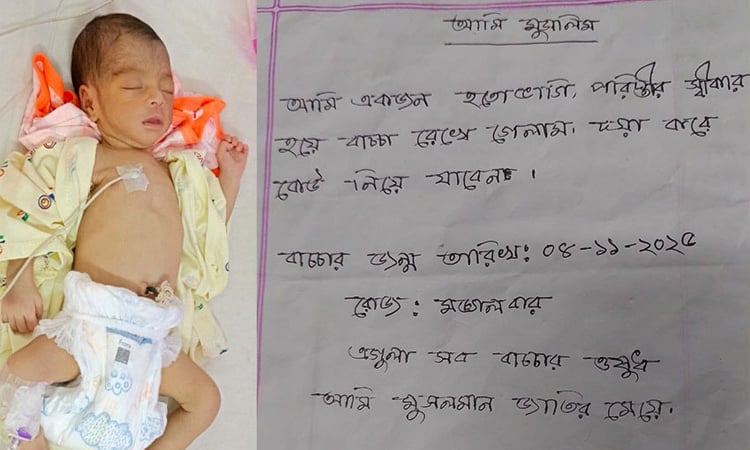 আমি মুসলিম
আমি একজন হতোভাগি, পরিস্থীর স্বীকার
হয়ে বাচ্চা রেখে গেলাম। দয়া করে
কেউ নিয়ে যাবেন।
বাচ্চার জন্ম তারিখ: ০৪-১১-২০২৫
রোজ: মঙ্গলবার
এগুলা সব বাচ্চার ওষুধ
আমি মুসলমান জাতির মেয়ে।